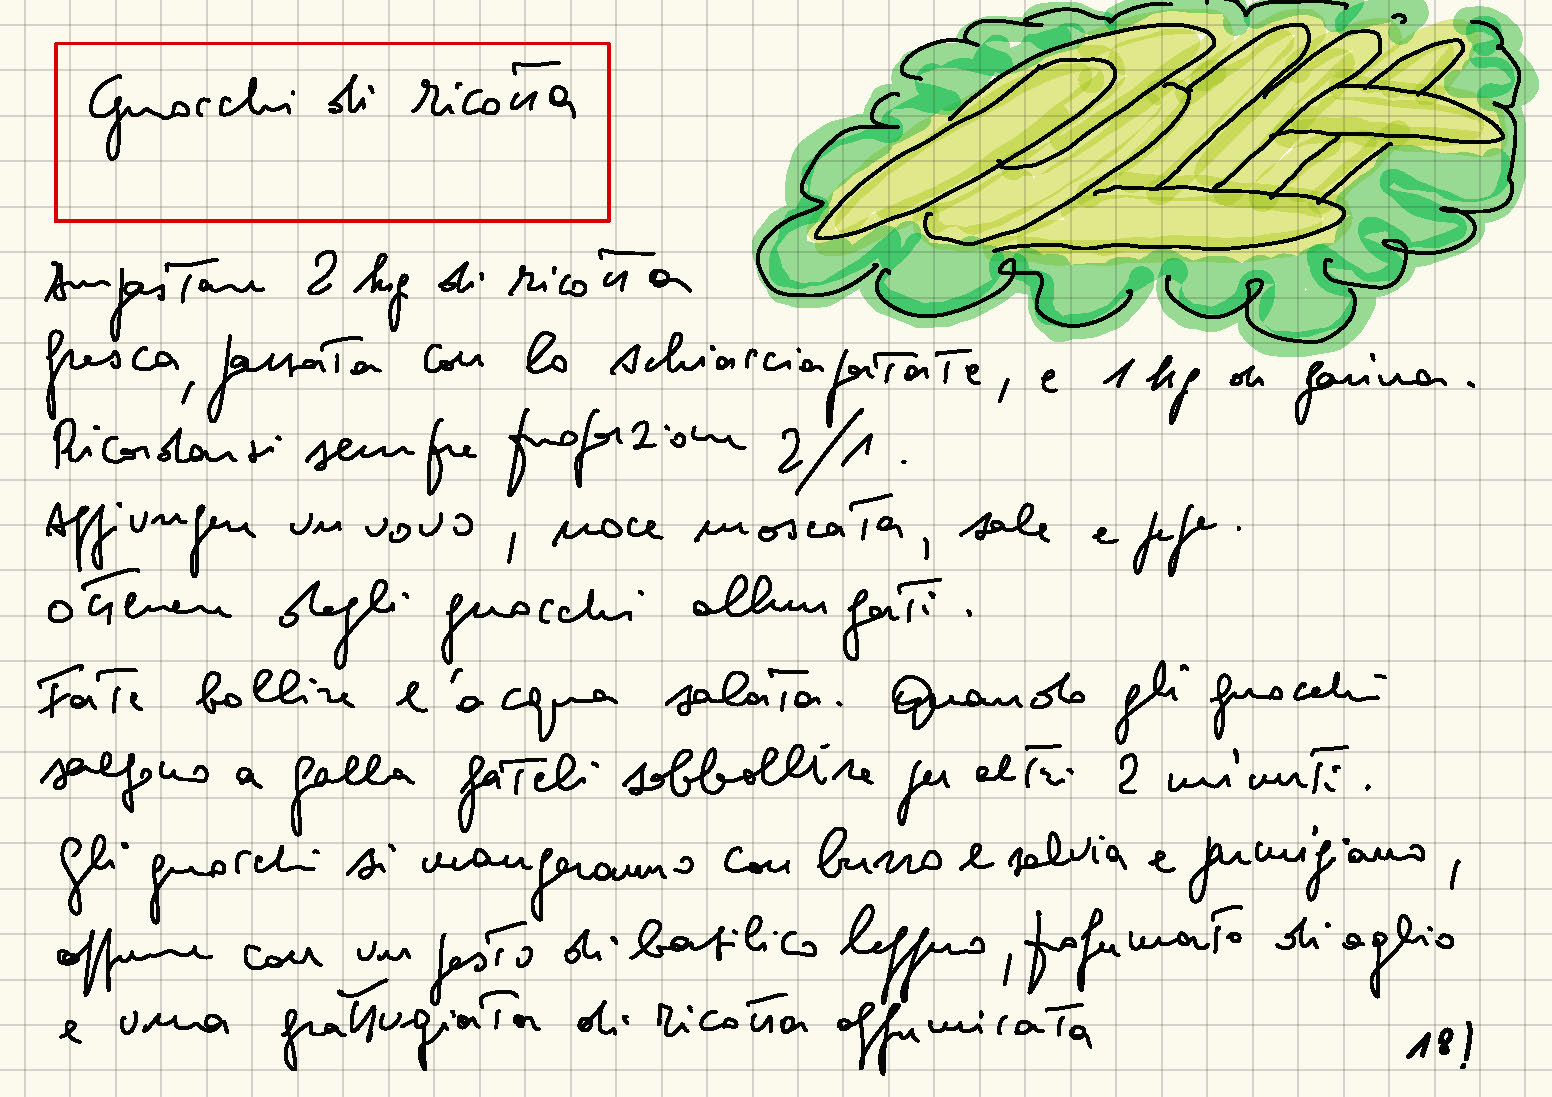 Gnocchi di ricotta
Impastare 2 kg di ricotta
fresca, passata con lo schiacciapatate, e 1 kg di farina.
Ricordarsi sempre proporzione 2/1.
Aggiungere un uovo, noce moscata, sale e pepe.
Ottenere degli gnocchi allungati.
Fate bollire l'acqua salata. Quando gli gnocchi
salgono a galla fateli sobbollire per altri 2 minuti.
Gli gnocchi si mangeranno con burro e salvia e parmigiano,
oppure con un pesto di basilico leggero, profumato di aglio
e una grattugiata di ricotta affumicata
18!